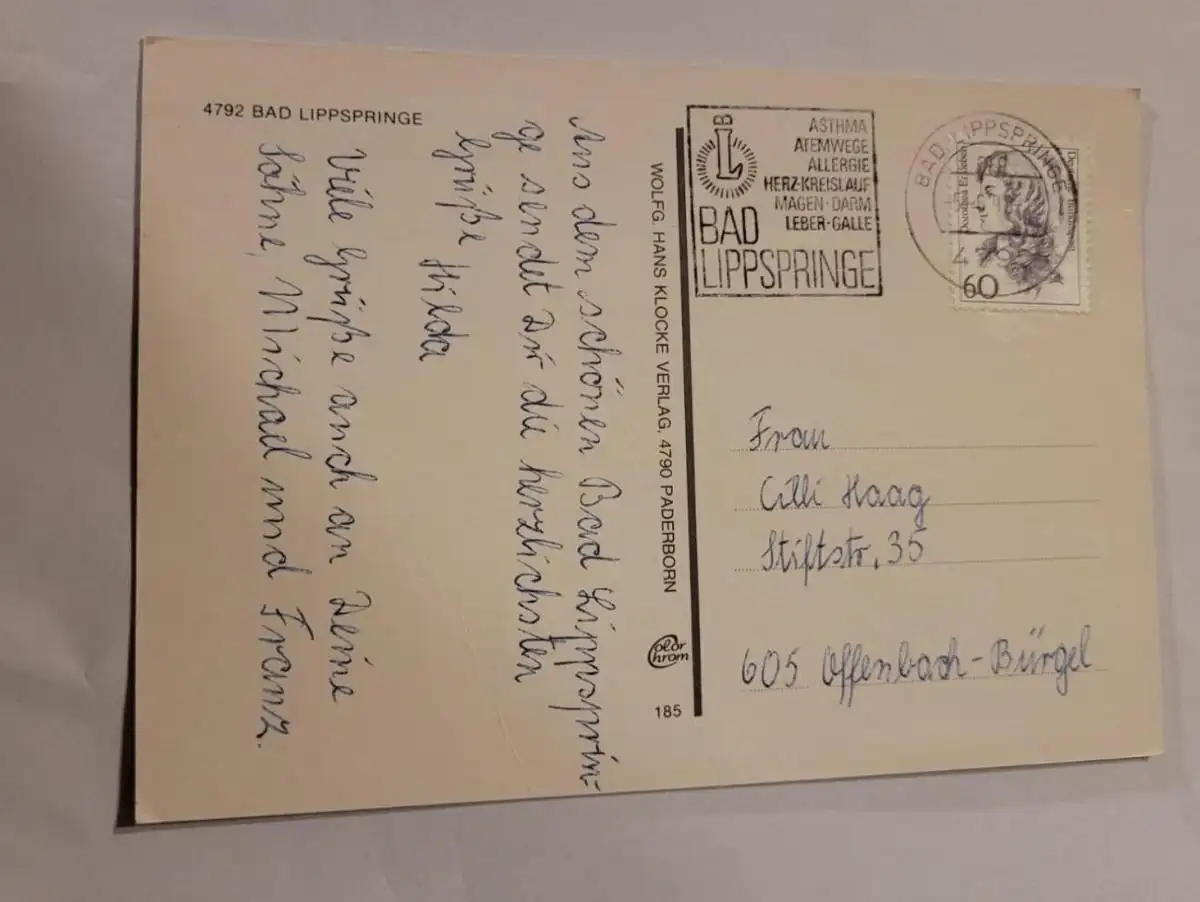 4792 BAD LIPPSPRINGE
Aus dem schönen Bad Lippsprin-
ge sendet Dir die herzlichsten
Grüße Hilda
Viele Grüße auch an Deine
Söhne, Michael und Franz.
WOLFG. HANS KLOCKE VERLAG, 4790 PADERBORN
Color
Chrom
185
B
L
ASTHMA
ATEMWEGE
ALLERGIE
HERZ-KREISLAUF
MAGEN·DARM
LEBER·GALLE
BAD
LIPPSPRINGE
BAD LIPPSPRINGE
60
Frau
Cilli Haag
Stiftstr. 35
605 Offenbach-Bürgel